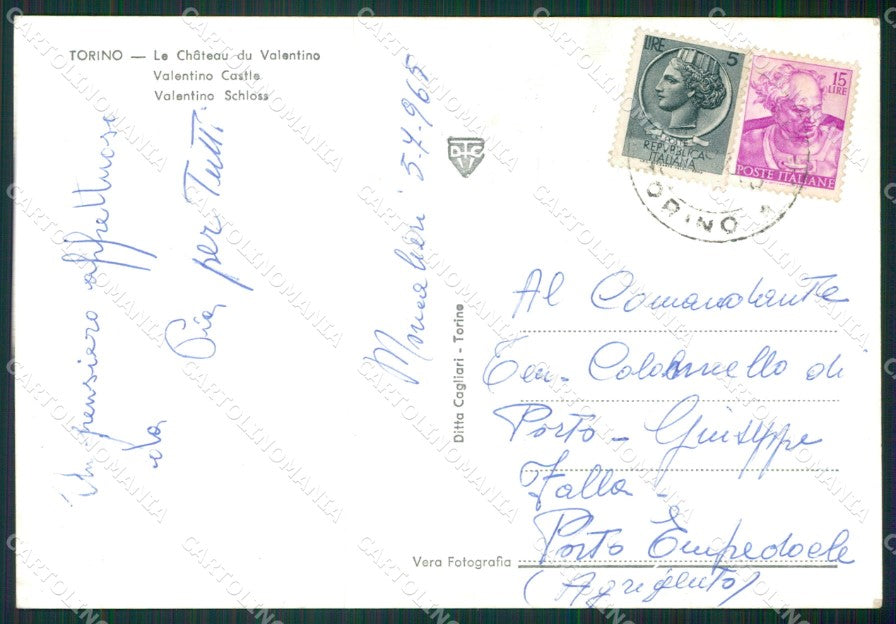 TORINO — Le Château du Valentino
Valentino Castle
Valentino Schloss
Un pensiero affettuoso
da
Pia per Tutti
Moncalieri 5-7-965
DCT
Ditta Cagliari - Torino
LIRE 5
REPUBBLICA
ITALIANA
15
LIRE
POSTE ITALIANE
TORINO
Al Comandante
Ten- Colonnello di
Porto - Giuseppe
Falla -
Porto Empedocle
(Agrigento)
Vera Fotografia
CARTOLINOMANIA